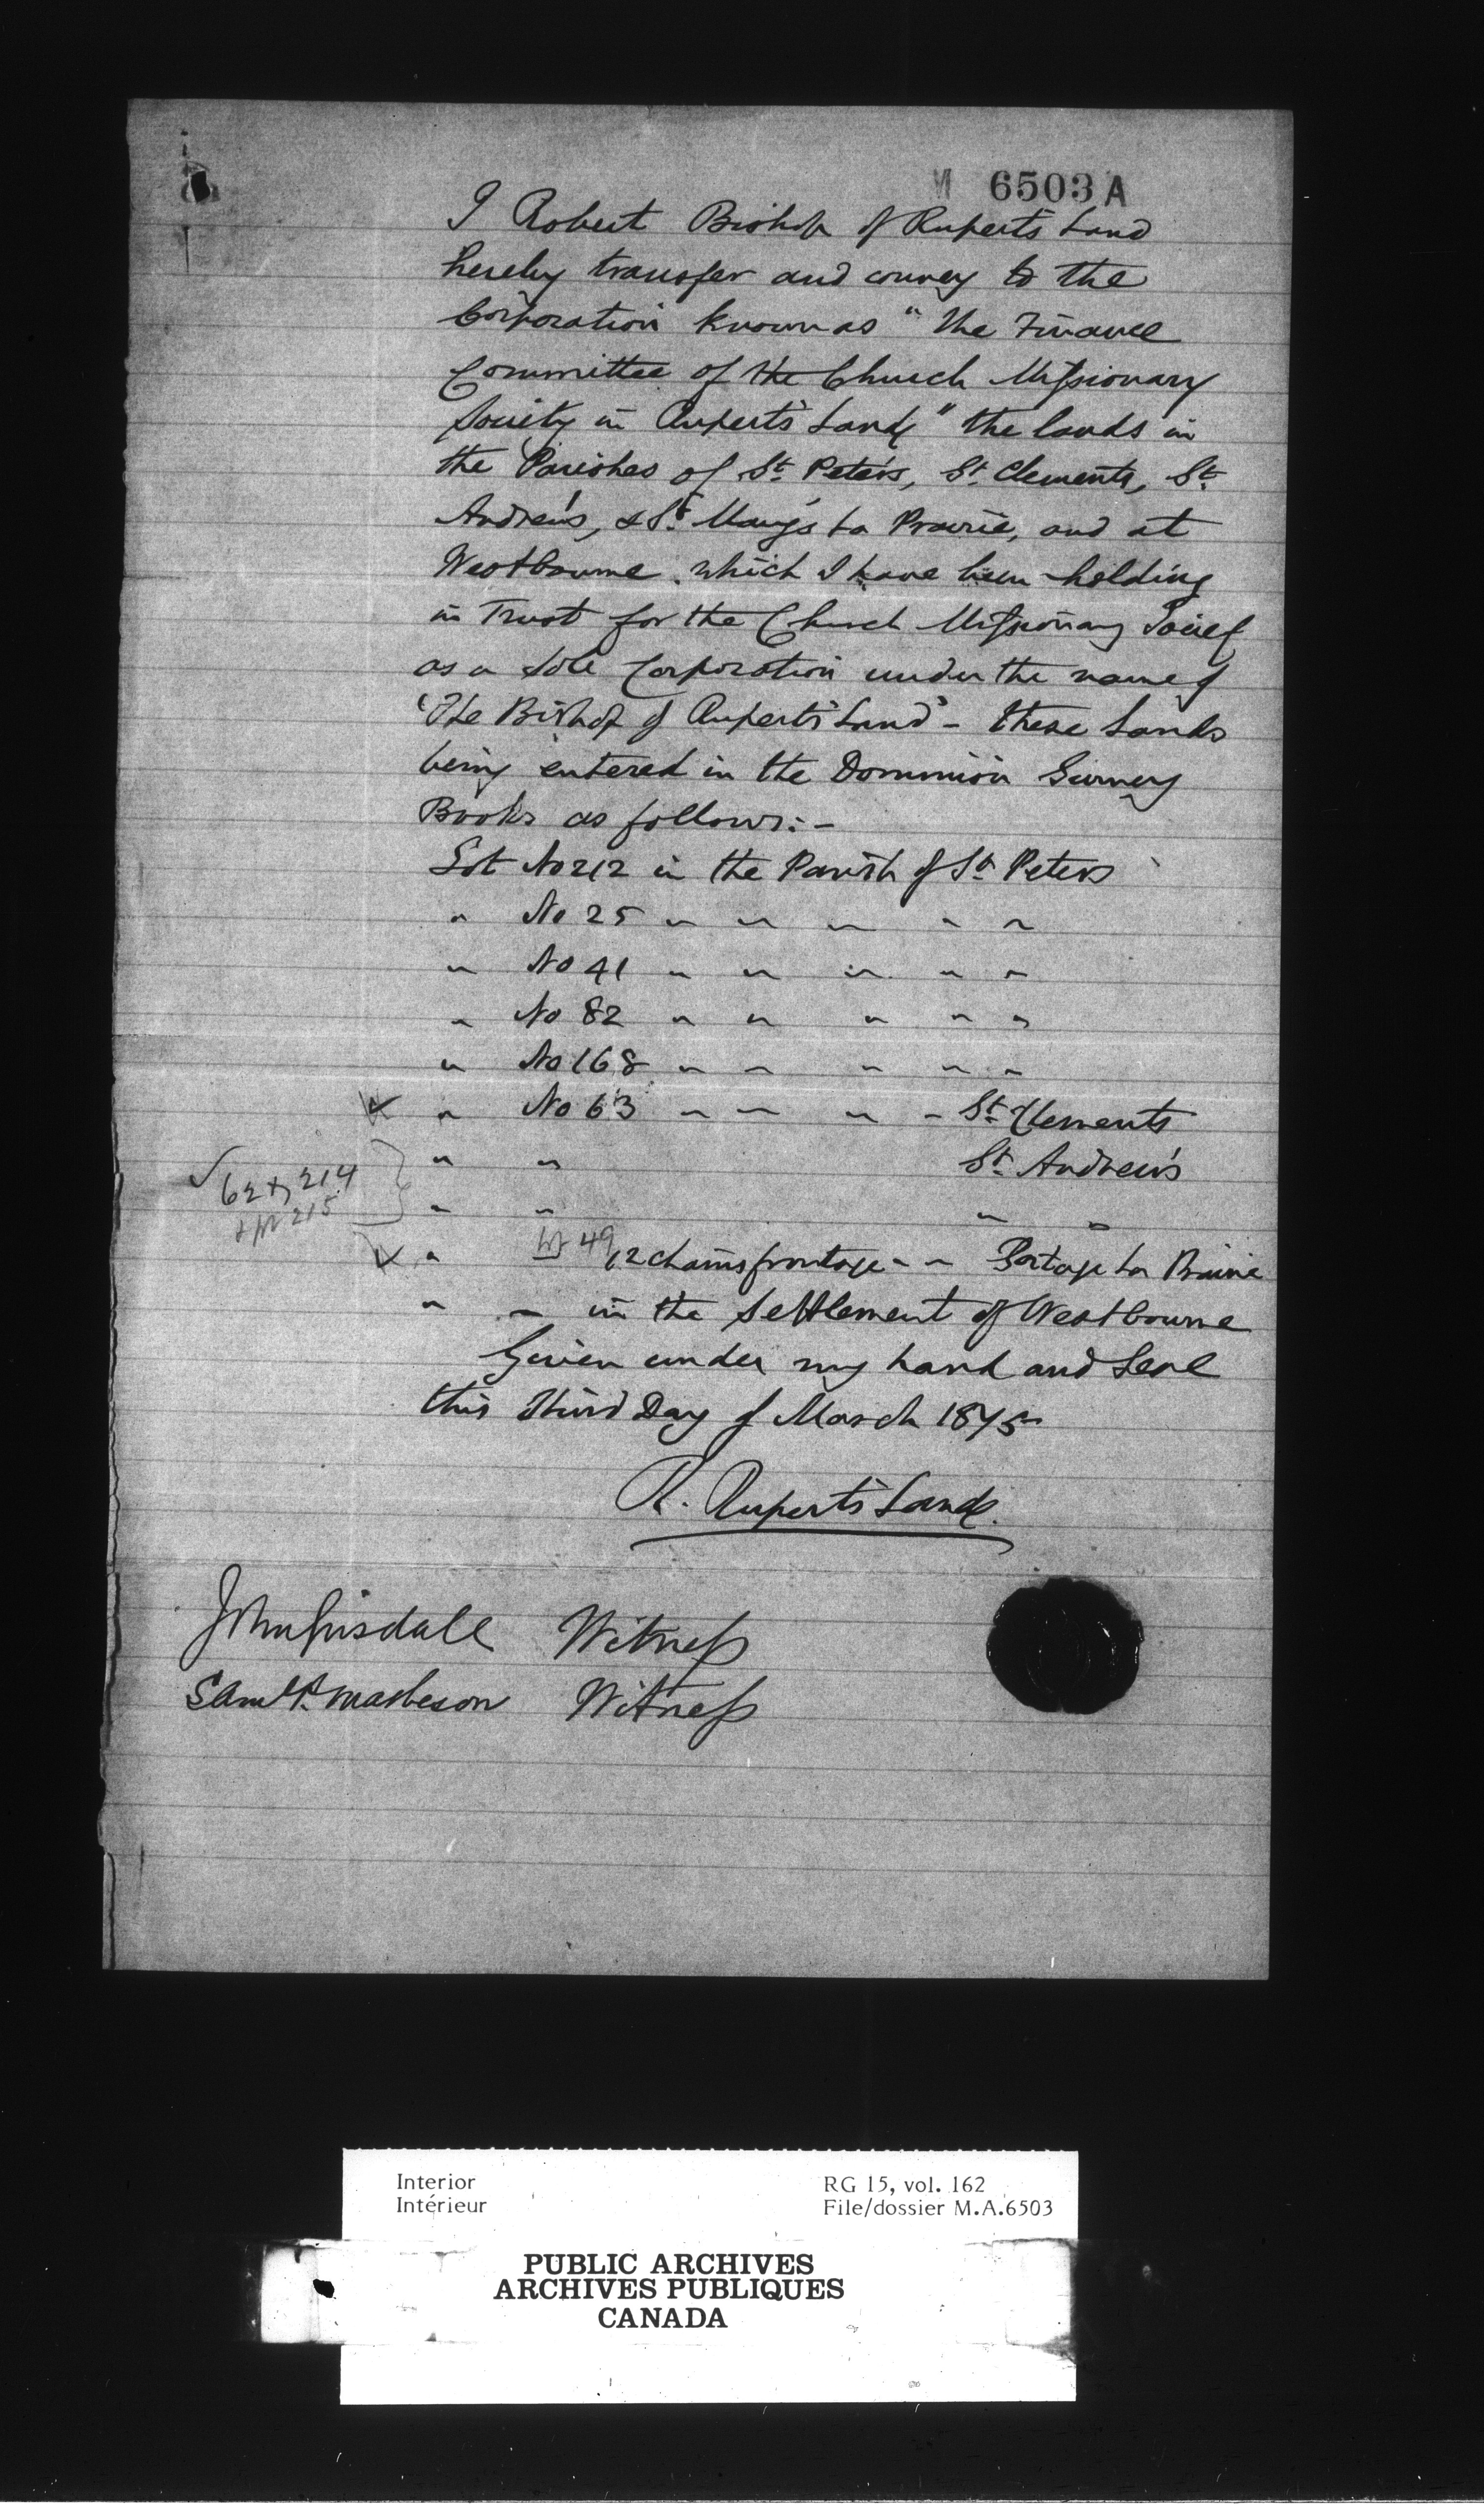 M 6503 A
I Robert Bishop of Rupert's Land
hereby transfer and convey to the
Corporation known as "The Finance
Committee of the Church Missionary
Society in Rupert's Land" the lands in
the Parishes of St. Peter's, St. Clements, St.
Andrew's, & St. Mary's La Prairie, and at
Westbourne which I have been holding
in Trust for the Church Missionary Society
as a Sole Corporation under the name of
'The Bishop of Rupert's Land' - these Lands
being entered in the Dominion Survey
Books as follows:-
Lot No 212 in the Parish of St. Peters
" No 25 " " " " "
" No 41 " " " " "
" No 82 " " " " "
" No 168 " " " " "
" No 63 " " " " St. Clements
" " St. Andrew's
62 & 214
& pt 215
" " " "
" Lot 49 12 chains frontage " " Portage La Prairie
" " in the Settlement of Westbourne
Given under my hand and Seal
this Third Day of March 1875
R. Rupert's Land.
John Grisdale Witness
Saml P. Matheson Witness
Interior RG 15, vol. 162
Intérieur File/dossier M.A.6503
PUBLIC ARCHIVES
ARCHIVES PUBLIQUES
CANADA